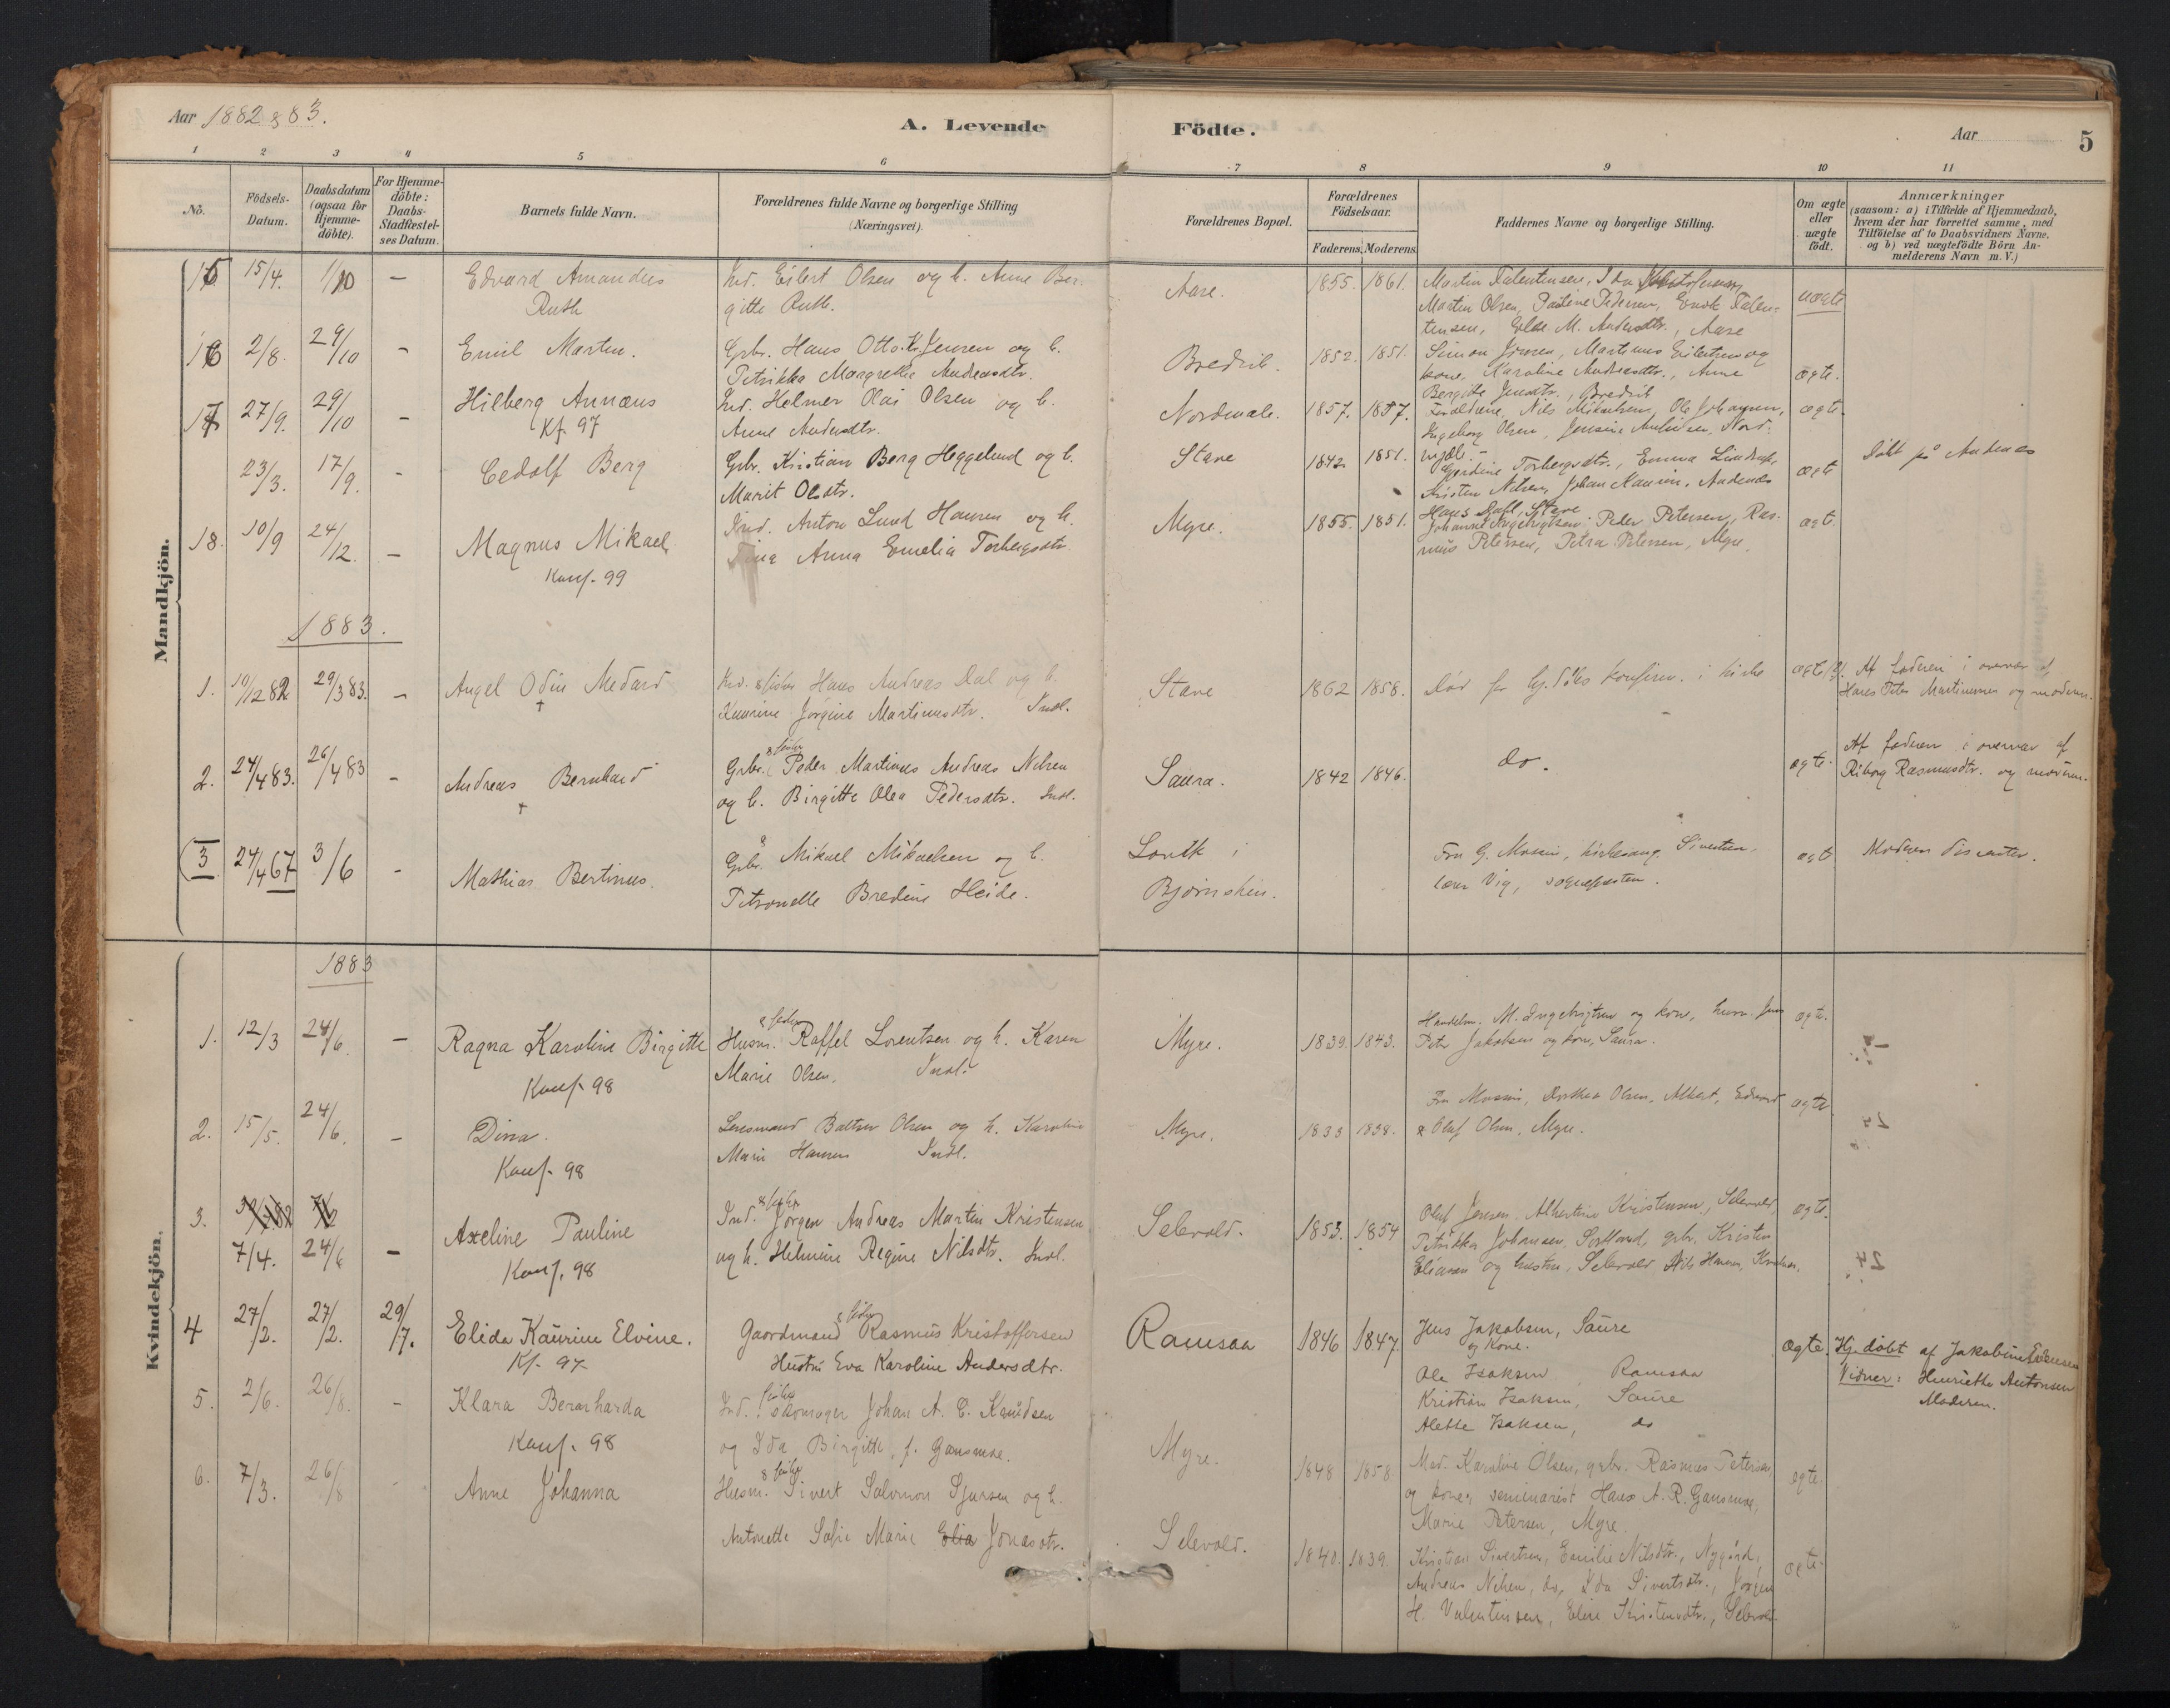 Aar 1882 & 83.
A. Levende
Födte.
Aar
5
1 2 3 4 5 6 7 8 9 10 11
No.
Födsels-
Datum.
Daabsdatum
(ogsaa for
Hjemme-
döbte).
For Hjemme-
döbte:
Daabs-
Stadfæstel-
ses Datum.
Barnets fulde Navn.
Forældrenes fulde Navne og borgerlige Stilling
(Næringsvei).
Forældrenes Bopæl.
Forældrenes
Födselsaar.
Faderens. Moderens.
Faddernes Navne og borgerlige Stilling.
Om ægte
eller
uægte
födt.
Anmærkninger
(saasom: a) i Tilfælde af Hjemmedaab,
hvem der har forrettet samme, med
Tilföielse af to Daabsvidners Navne.
og b) ved uægtefödte Börn An-
melderens Navn m. V.)
Mandkjön.
15 15/4. 1/10 — Edvard Amandus
Ruth
Ind. Eilert Olsen og h. Anne Ber-
gitte Ruth.
Aase. 1855. 1861.
Martin Olsen, Pauline Pedersen, Enok Falen-
tensen, M. Andersdtr., Aase
uægte
16 2/8. 29/10 - Emil Martin.
Grbr. Hans Otto Kr. Jensen og h.
Petrikka Margrethe Andreasdtr.
Bredvik. 1852. 1851.
Simon Jensen, Martinus Eilertsen og
kone, Karoline Andreasdtr., Anne
Bergitte Jensdtr., Bredvik
ægte.
17 27/9. 29/10 - Hilberg Annæus
Kf. 97
Ind. Helmer Olai Olsen og h.
Anne Andersdtr.
Nordmæle. 1857. 1857.
Forældrene, Nils Mikaelsen, Ole Johansen,
Ingeborg Olsen, Jensine Andersen, Nord-
mjæle. -
ægte.
23/3. 17/9. - Cedolf Berg
Grbr. Kristian Berg Heggelund og h.
Marit Olsdtr.
Stave 1842 1851.
Gjerdine Torbergsdtr., Emma
Kristen Nilsen, Johan Hansen, Andenes
Hans Dahl, Stave
ægte
Döbt på Andenes
18. 10/9 24/12. - Magnus Mikael
Konf. 99
Ind. Anton Lund Hansen og h.
Anna Emelia Torbergsdtr.
Myre. 1855. 1851.
Johannes Ingebrigtsen, Peder Petersen, Ras-
mus Petersen, Petra Petersen, Myre.
ægte.
1883.
1. 10/12 82 29/3 83. - Angel Odin Medard
+
Ind. & fisker Hans Andreas Dal og h.
Kaurine Jorgine Martinusdtr. Indl.
Stave 1862 1858.
Död för hj. döbs konfirm. i kirke
ægte
Af faderen i overvær af
Hans Peter Martinussen og moderen.
2. 24/4 83. 26/4 83 - Andreas Bernhard
+
& fisker
Grbr. Peder Martinus Andreas Nilsen
og h. Birgitte Olea Pedersdtr. Indl.
Saura. 1842 1846.
do.
ægte.
Af faderen i overvær af
Riborg Rasmusdtr. og moderen.
3 24/4 67 3/6 - Mathias Bertinus.
Grbr. Mikael Mikaelsen og h.
Petronelle Bredine Heide.
Lovik i
Bjørnskin.
Fru G. Mossin, kirkesang. Sivertsen,
lærer Vig, sognepresten.
ægt
Moderen dissenter.
Kvindekjön.
1883
1. 12/3 24/6. — Ragna Karoline Birgitte
Konf. 98
& fisker
Husm. Raffel Lorentsen og h. Karen
Marie Olsen. Indl.
Myre. 1839. 1843.
Handelsm. M. Ingebrigtsen og kone, husm. Jens
Peter Jakobsen og kone, Saura.
ægte.
2. 15/5. 24/6. - Dina.
Konf. 98
Lensmand Baltser Olsen og h. Karoline
Marie Hansen Indl.
Myre. 1833 1838.
Fru Mossin, Dorthea Olsen, Albert, Edvard
& Oluf Olsen, Myre.
ægte.
3. 7/4. 24/6 — Axeline Pauline
Konf. 98
& fisker
Ind. Jörgen Andreas Martin Kristensen
og h. Helmine Regine Nilsdtr. Indl.
Selevold. 1853. 1854
Oluf Jensen, Albertine Kristensen, Selevold,
Petrikka Johansen, Sortland, grbr. Kristen
Eliassen og hustru, Selevold, Nils Hansen,
ægte.
4 27/2. 27/2. 29/7. Elida Kaurine Elvine.
Kf. 97
& fisker
Gaardmand Rasmus Kristoffersen
Hustru Eva Karoline Andersdtr.
Ramsaa 1846 1847.
Jens Jakobsen, Saure
og Kone.
Ole Isaksen Ramsaa
Kristian Isaksen, Saure
Alette Isaksen, do
Ægte.
Hj. döbt af Jakobine Evensen
Vidner: Henriette Antonsen
Moderen.
5. 2/6. 26/8. - Klara Bernharda
Konf. 98
fisker
Ind. skomager Johan A. C. Knudsen
og Ida Birgitte, f. Gansmoe.
Myre. 1848 1858.
Mad. Karoline Olsen, grbr. Rasmus Petersen
og kone, seminarist Hans A. R. Gansmoe,
Marie Petersen, Myre.
ægte.
6. 7/3. 26/8 - Anne Johanna
& fisker
Husm. Sivert Salomon Sjursen og h.
Antonette Sofie Marie Elia Jonasdtr.
Selevold. 1840. 1839.
Kristian Sivertsen, Emilie Nilsdtr., Nygård,
Andreas Nilsen, do, Ida Sivertsdtr., Jörgen
H. Valentinsen, Eline Kristensdtr., Selevold.
ægte.